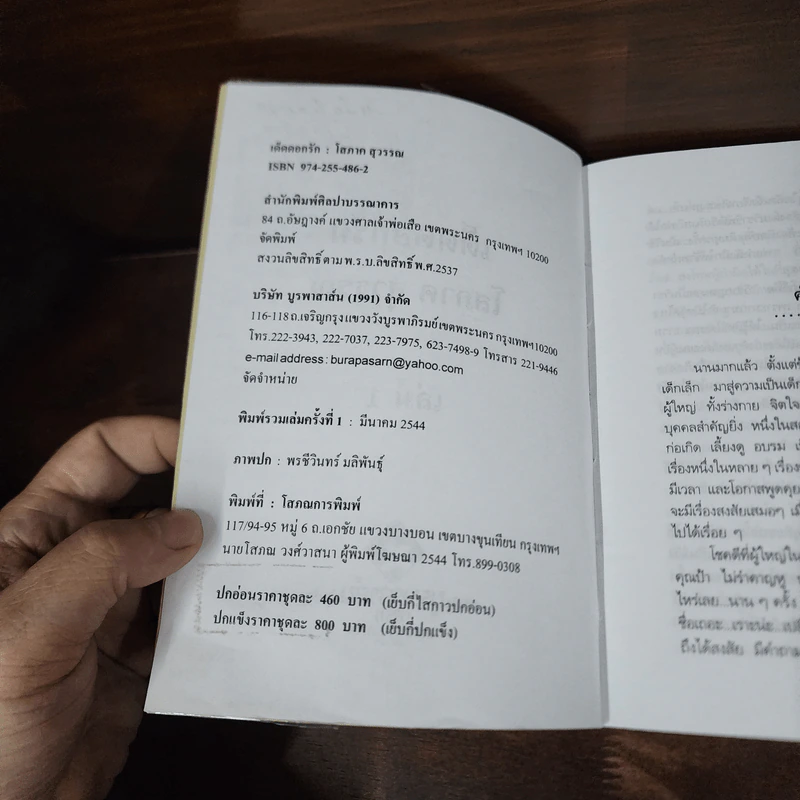 เด็ดดอกรัก : โสภาค สุวรรณ
ISBN 974-255-486-2
สำนักพิมพ์ศิลปาบรรณาคาร
84 ถ.อัษฎางค์ แขวงศาลเจ้าพ่อเสือ เขตพระนคร กรุงเทพฯ 10200
จัดพิมพ์
สงวนลิขสิทธิ์ ตาม พ.ร.บ.ลิขสิทธิ์ พ.ศ.2537
บริษัท บูรพาสาส์น (1991) จำกัด
116-118 ถ.เจริญกรุงแขวงวังบูรพาภิรมย์เขตพระนคร กรุงเทพฯ10200
โทร.222-3943, 222-7037, 223-7975, 623-7498-9 โทรสาร 221-9446
e-mail address : burapasarn@yahoo.com
จัดจำหน่าย
พิมพ์รวมเล่มครั้งที่ 1 : มีนาคม 2544
ภาพปก : พรชีวินทร์ มลิพันธุ์
พิมพ์ที่ : โสภณการพิมพ์
117/94-95 หมู่ 6 ถ.เอกชัย แขวงบางบอน เขตบางขุนเทียน กรุงเทพฯ
นายโสภณ วงศ์วาสนา ผู้พิมพ์โฆษณา 2544 โทร.899-0308
ปกอ่อนราคาชุดละ 460 บาท (เย็บกี่ไสกาวปกอ่อน)
ปกแข็งราคาชุดละ 800 บาท (เย็บกี่ปกแข็ง)
นานมากแล้ว ตั้งแต่
เด็กเล็ก มาสู่ความเป็นเด็ก
ผู้ใหญ่ ทั้งร่างกาย จิตใจ
บุคคลสำคัญยิ่ง หนึ่งใน
ก่อเกิด เลี้ยงดู อบรม
เรื่องหนึ่งในหลาย ๆ เรื่อง
มีเวลา และโอกาสพูดคุย
จะมีเรื่องสงสัยเสมอๆ
ไปได้เรื่อย ๆ
โชคดีที่ผู้ใหญ่ใน
คุณป้า ไม่รำคาญหู
ไหร่เลย...นาน ๆ ครั้ง
ชื่อเถอะ...เราะน่ะ...
ถึงได้สงสัย มีคำถาม